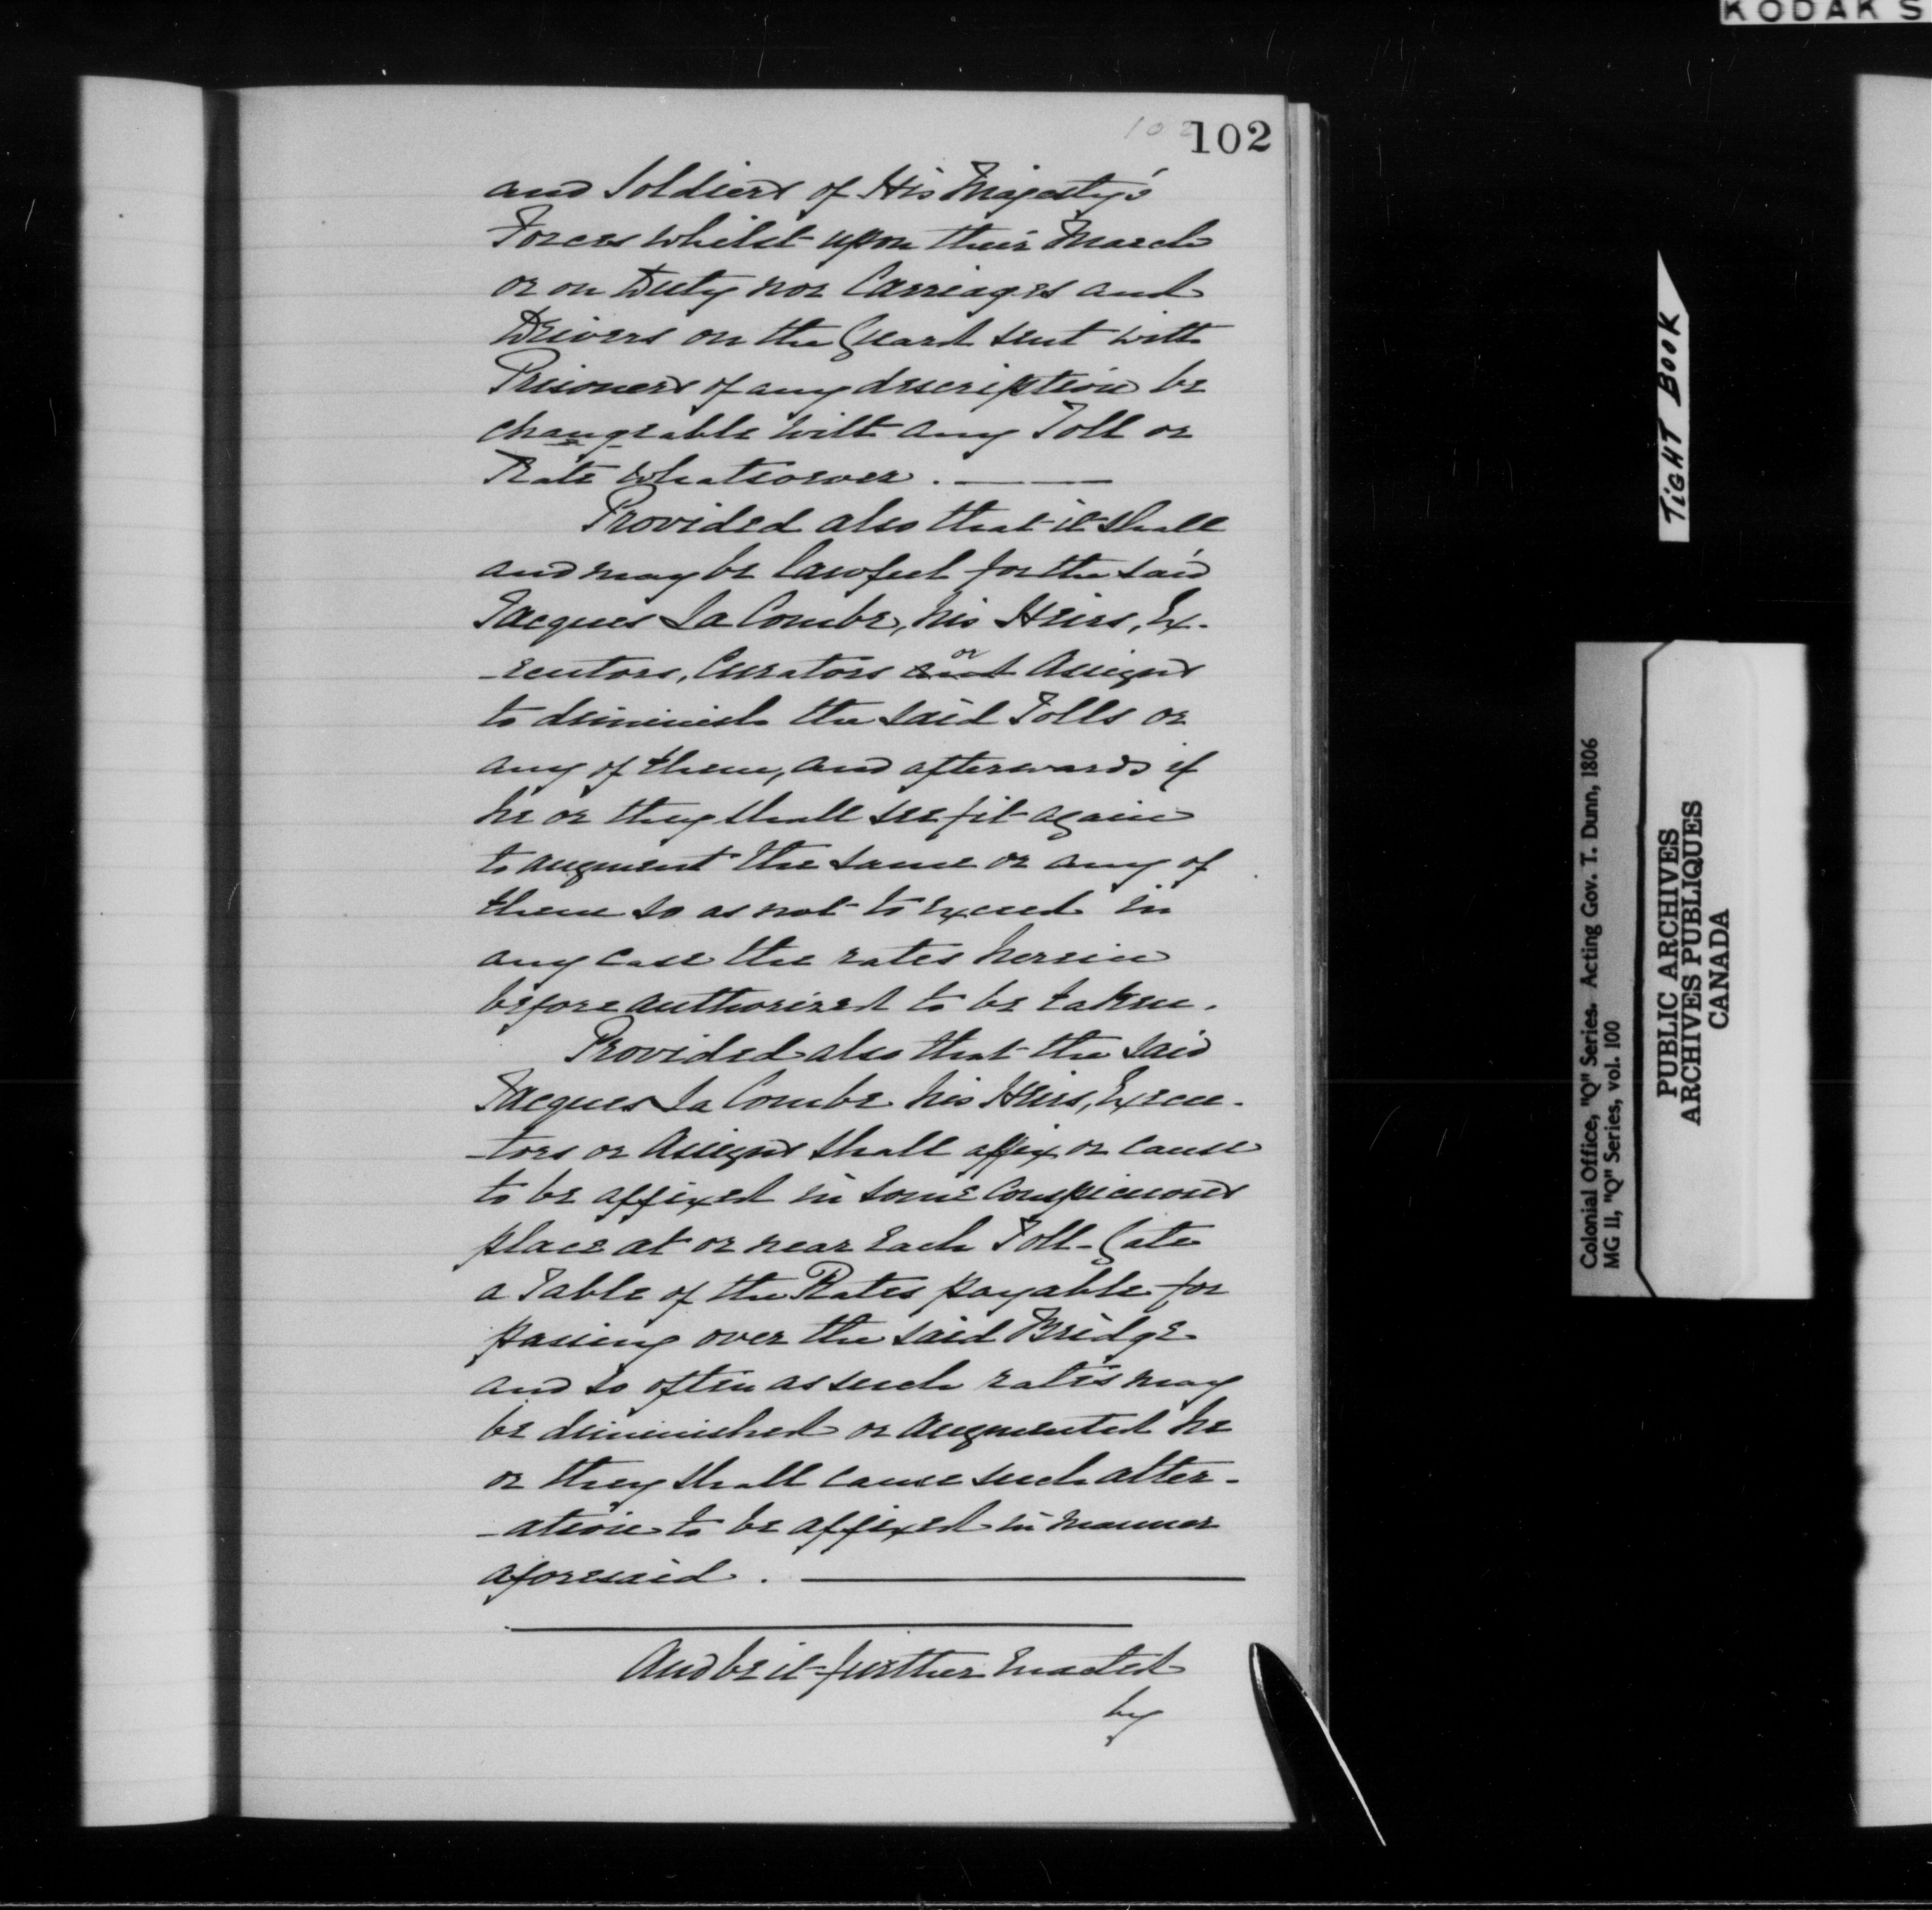 KODAK S
102
102
and Soldiers of His Majesty's
Forces whilst upon their March
or on Duty nor Carriages and
Drivers on the Guard sent with
Prisoners of any description be
changeable with any Toll or
Rate whatsoever.
Provided also that it shall
and may be lawful for the said
Jacques La Combe, his Heirs, Ex-
-ecutors, Curators and or Assigns
to diminish the said Tolls or
any of them, and afterwards if
he or they shall see fit again
to augment the same or any of
them so as not to exceed in
any case the rates herein
before authorized to be taken.
Provided also that the said
Jacques La Combe his Heirs, Execu-
-tors or Assigns shall affix or cause
to be affixed in some conspicuous
place at or near each Toll-Gate
a Table of the Rates payable for
passing over the said Bridge
and so often as such rates may
be diminished or augmented he
or they shall cause such alter-
-ation to be affixed in manner
aforesaid.
And be it further Enacted
by
TIGHT BOOK
Colonial Office, "Q" Series. Acting Gov. T. Dunn, 1806
MG 11, "Q" Series, vol. 100
PUBLIC ARCHIVES
ARCHIVES PUBLIQUES
CANADA